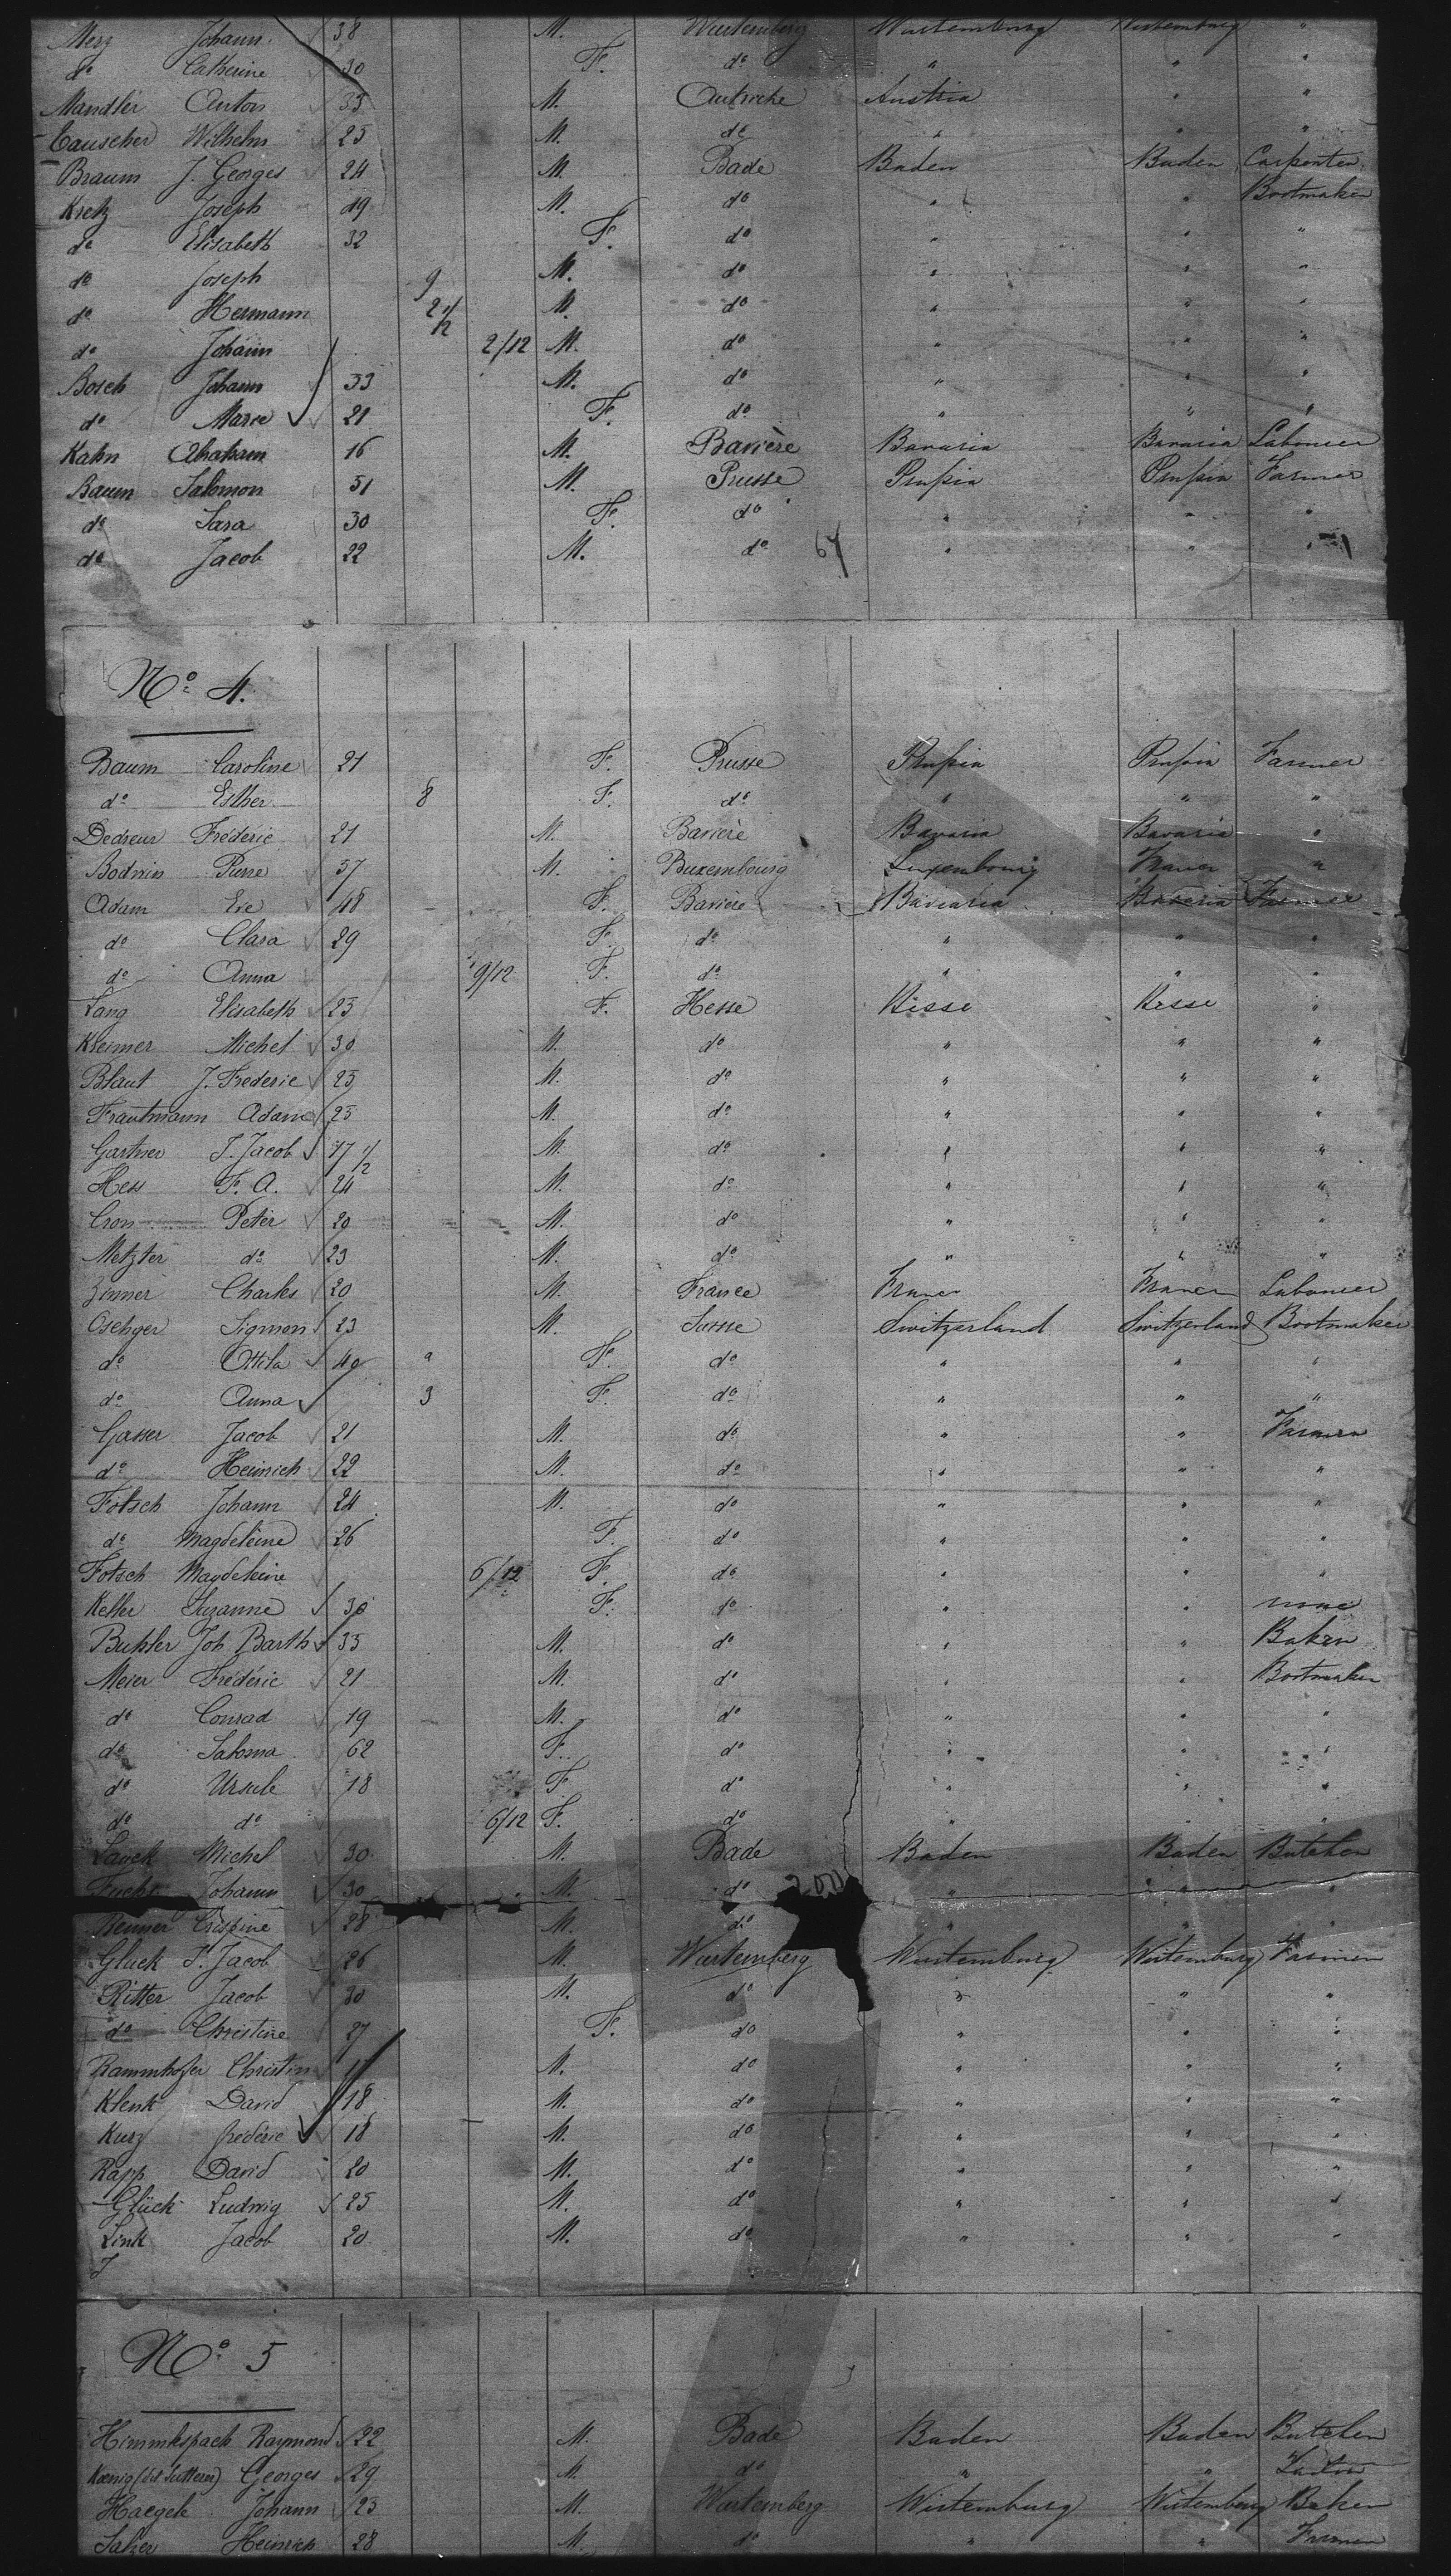 Merz Johann 38 M. Wurtemberg Wurtemburg Wurtemburg "
do Catherine 30 F. do " " "
Mandler Anton 35 M. Autriche Austria " "
Causcher Wilhelm 25 M. do " " "
Braum J. Georges 24 M. Bade Baden Baden Carpenter
Kretz Joseph 49 M. do " " Bootmaker
do Elisabeth 32 F. do " " "
do Joseph 9 M. do " " "
do Hermann 2 1/2 M. do " " "
do Johann 2/12 M. do " " "
Bosch Johann 33 M. do " " "
do Marie 21 F. do " " "
Kahn Abraham 16 M. Bavière Bavaria Bavaria Labourer
Baum Salomon 51 M. Prusse Prussia Prussia Farmer
do Sara 30 F. do " " "
do Jacob 22 M. do 64 " " "
No 4.
Baum Caroline 21 F. Prusse Prussia Prussia Farmer
do Esther 8 F. do " " "
Dedreur Fréderic 21 M. Bavière Bavaria Bavaria "
Bodwin Pierre 37 M. Buxembourg Luxembourg France "
Adam Eve 48 F. Bavière Bavaria Bavaria Farmer
do Clara 29 F. do " " "
do Anna 9/12 F. do " " "
Lang Elisabeth 23 F. Hesse Hesse Hesse "
Kleimer Michel 30 M. do " " "
Blaut J. Frederic 25 M. do " " "
Trautmann Adam 25 M. do " " "
Gartner J. Jacob 17 1/2 M. do " " "
Hess F. A. 24 M. do " " "
Cron Peter 20 M. do " " "
Metzter do 23 M. do " " "
Zinner Charles 20 M. France France France Labourer
Osehger Sigmon 23 M. Suisse Switzerland Switzerland Bootmaker
do Ottila 40 F. do " " "
do Anna 3 F. do " " "
Gasser Jacob 21 M. do " " Farmer
do Heinrich 22 M. do " " "
Fotsch Johann 24 M. do " " "
do Magdeleine 26 F. do " " "
Fotsch Magdeleine 6/12 F. do " " "
Keller Suzanne 30 F. do " " none
Buhler Joh Barth 35 M. do " " Baker
Meier Frédéric 21 M. do " " Bootmaker
do Conrad 19 M. do " " "
do Saloma 62 F. do " " "
do Ursule 18 F. do " " "
do do 6/12 F. do " " "
Lauck Michel 30 M. Bade Baden Baden Butcher
Fuchs Johann 30 M. do 200 " " "
Renner Crispine 28 M. do " " "
Gluck J. Jacob 26 M. Wurtemberg Wurtemburg Wurtemburg Farmer
Ritter Jacob 30 M. do " " "
do Christine 27 F. do " " "
Rammhofer Christin M. do " " "
Klenk David 18 M. do " " "
Kurz frédéric 18 M. do " " "
Rapp David 20 M. do " " "
Glück Ludwig 25 M. do " " "
Link Jacob 20 M. do " " "
J
No 5
Himmlspach Raymond 22 M. Bade Baden Baden Butcher
Kœnig (dit Sutterer) Georges 29 M. do " "
Haegele Johann 23 M. Wurtemberg Wirtemburg Wirtemburg Baker
Salzer Heinrich 28 M. do " " Farmer